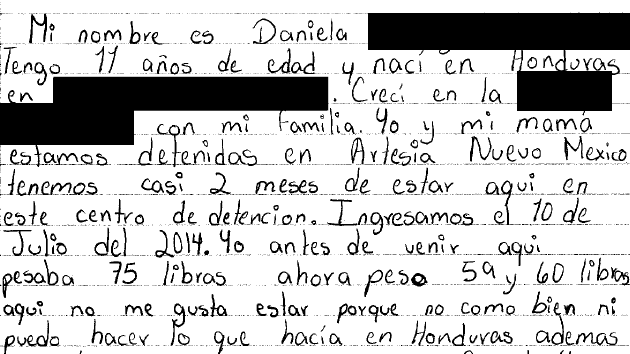 Mi nombre es Daniela
Tengo 11 años de edad y nací en Honduras
en . Crecí en la
con mi familia. Yo y mi mamá
estamos detenidas en Artesia Nuevo Mexico
tenemos casi 2 meses de estar aqui en
este centro de detencion. Ingresamos el 10 de
Julio del 2014. Yo antes de venir aqui
pesaba 75 libras ahora peso 59 y 60 libras
aqui no me gusta estar porque no como bien ni
puedo hacer lo que hacía en Honduras ademas